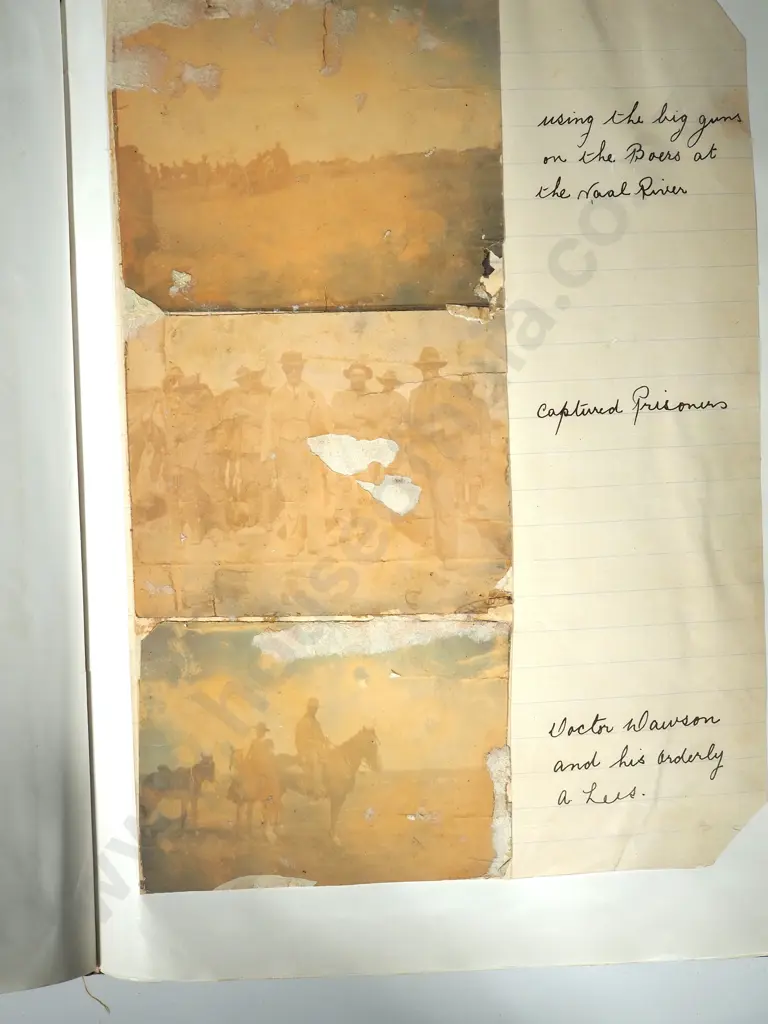 using the big guns
on the Boers at
the Vaal River
captured Prisoners
Doctor Dawson
and his orderly
A Lees.